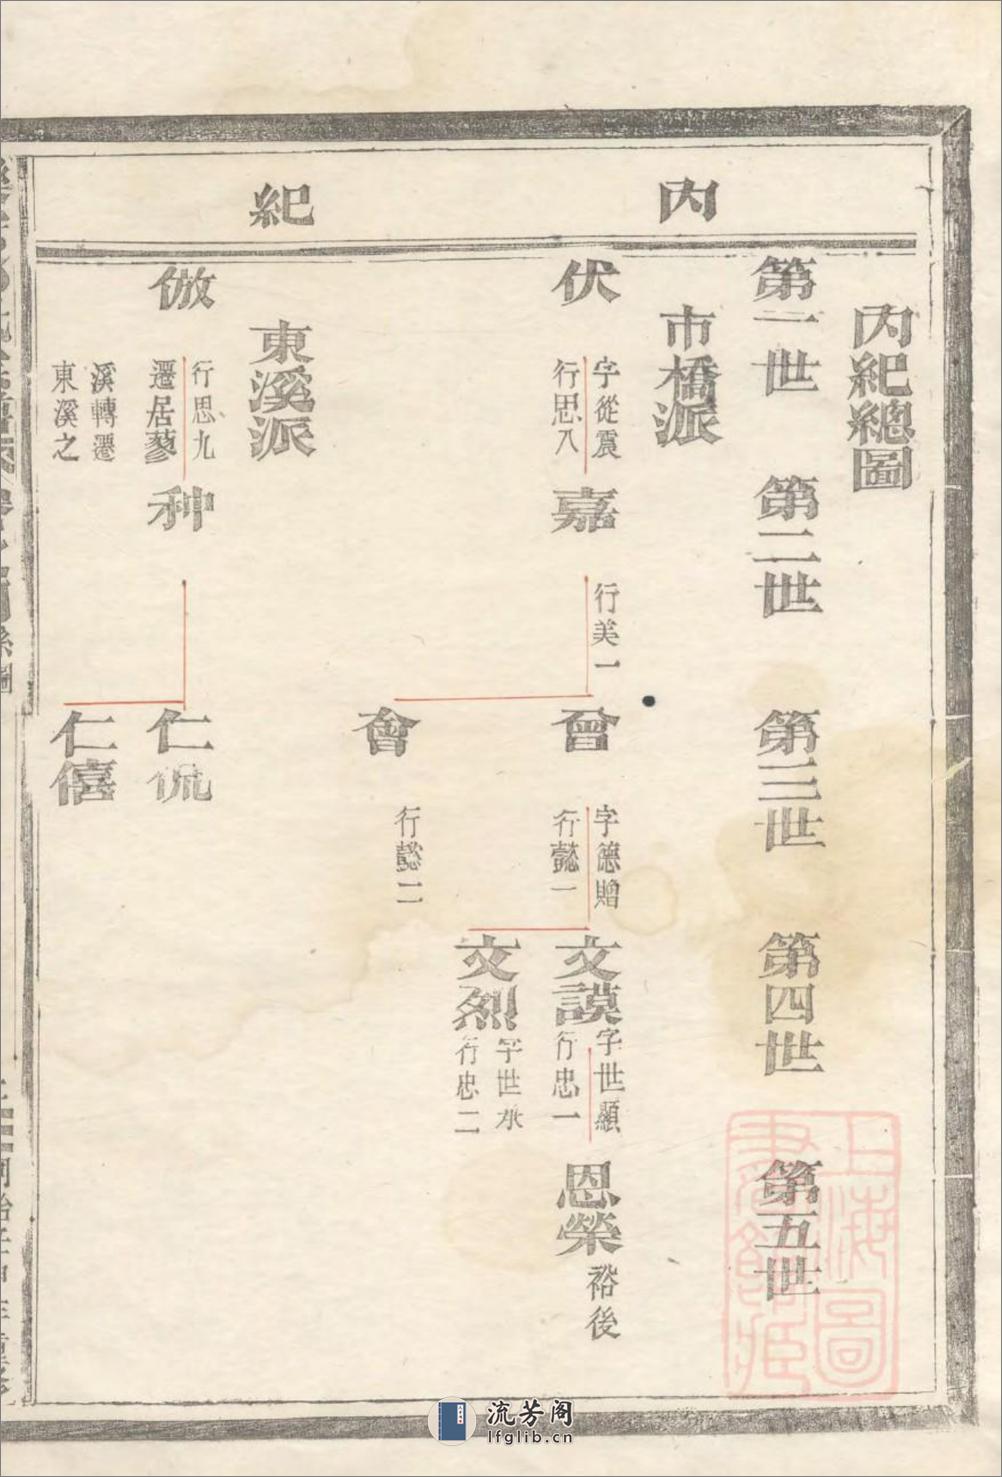 內紀
內紀總圖
第一世 第二世 第三世 第四世 第五世
市橋派
伏
字從震
行思八
嘉
行美一
曾
字德贈
行懿一
文謨
字世顯
行忠一
恩榮
裕後
文烈
字世承
行忠二
會
行懿二
東溪派
倣
行思九
遷居蓼
溪轉遷
東溪之
种
仁侃
仁僖
上海圖
書館藏
流芳阁
lfglib.cn